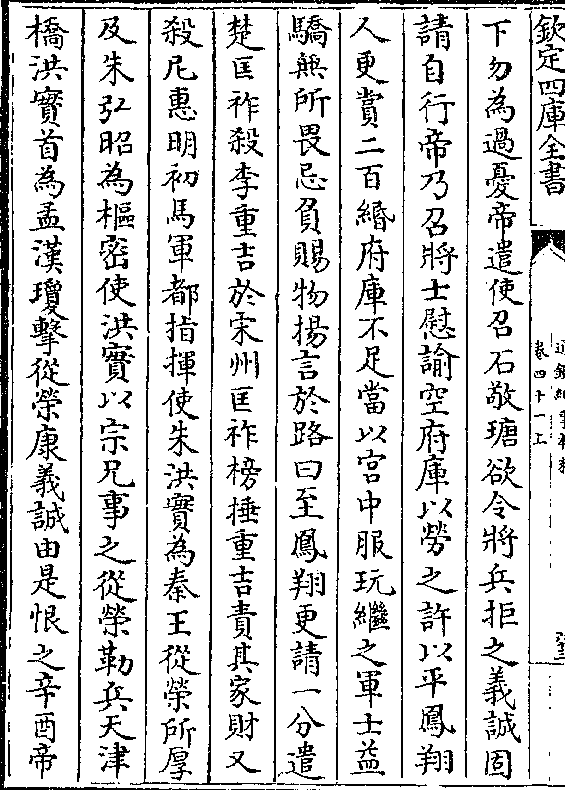 欽定四庫全書
卷四十一上
下勿為過憂帝遣使召石敬瑭欲令將兵拒之義誠固
請自行帝乃召將士慰諭空府庫以勞之許以平鳳翔
人更賞二百緡府庫不足當以宮中服玩繼之軍士益
驕無所畏忌負賜物揚言於路曰至鳳翔更請一分遣
楚匡祚殺李重吉於宋州匡祚榜捶重吉責其家財又
殺尼惠明初馬軍都指揮使朱洪實為秦王從榮所厚
及朱弘昭為樞密使洪實以宗兄事之從榮勒兵天津
橋洪實首為孟漢瓊擊從榮康義誠由是恨之辛酉帝